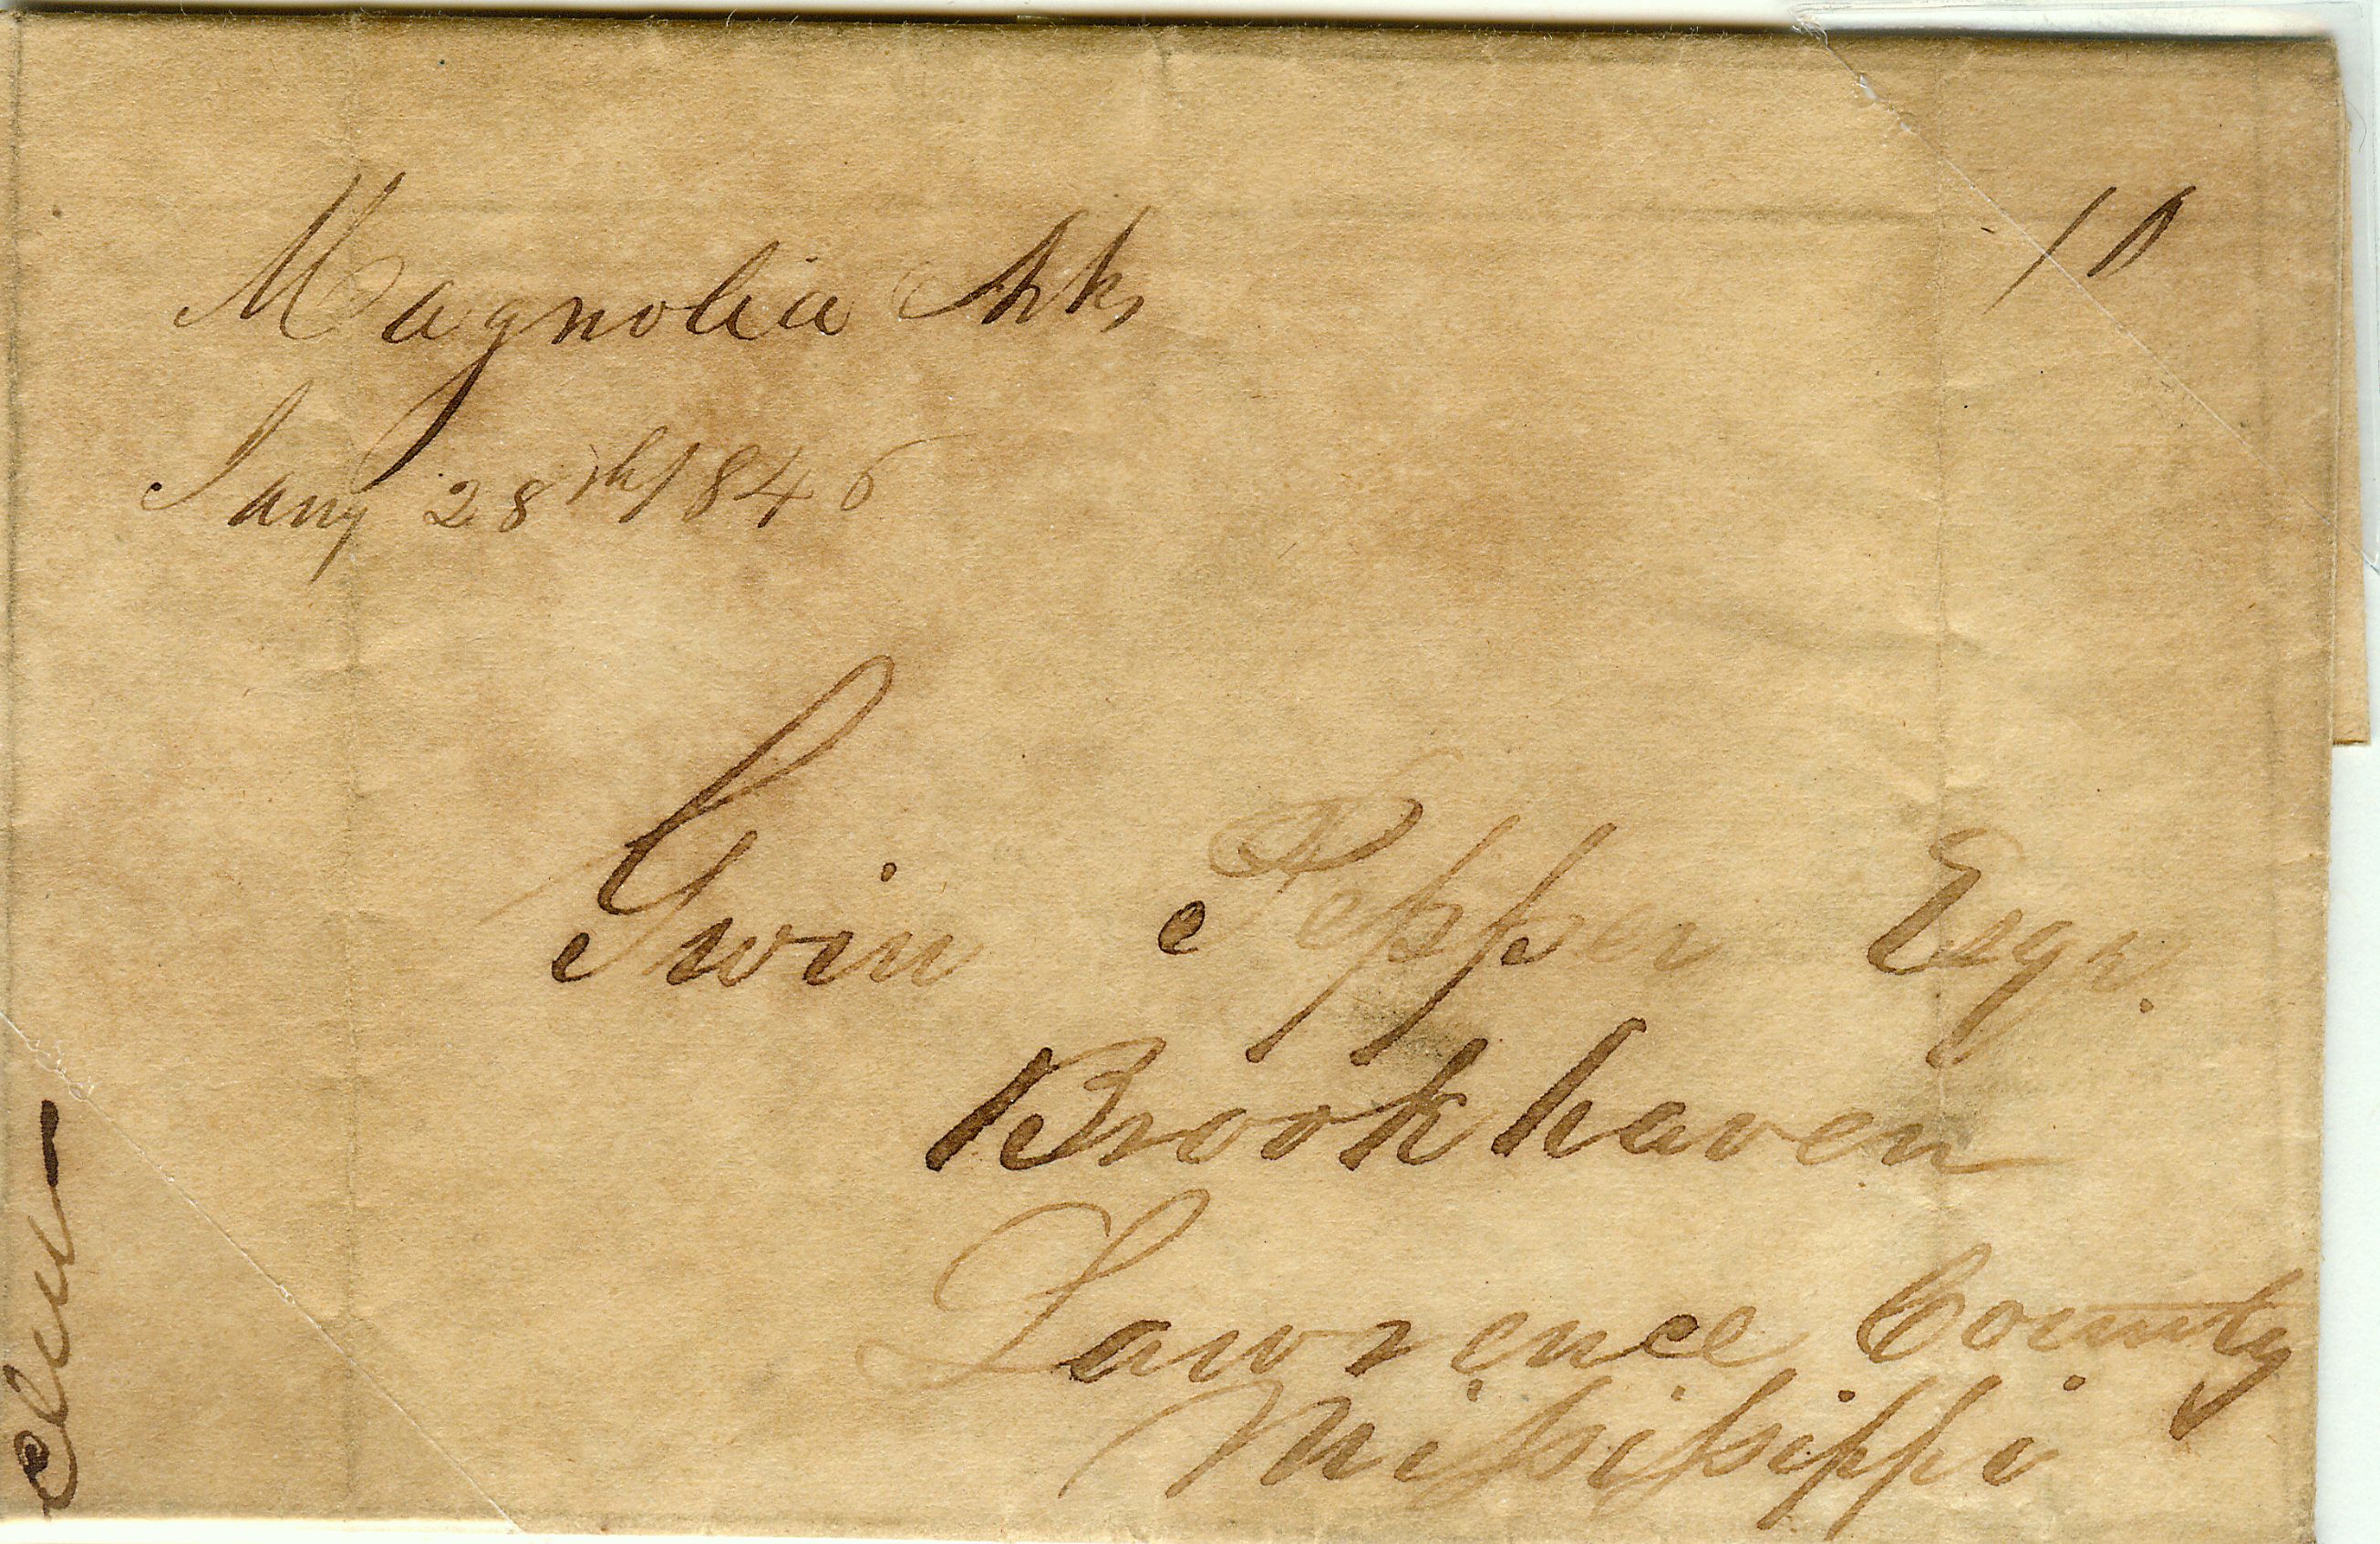 Magnolia Arks,
10
Jany 28th 1846
Gwin Pepper Esqr.
Brookhaven
Lawrence County
Mississippi